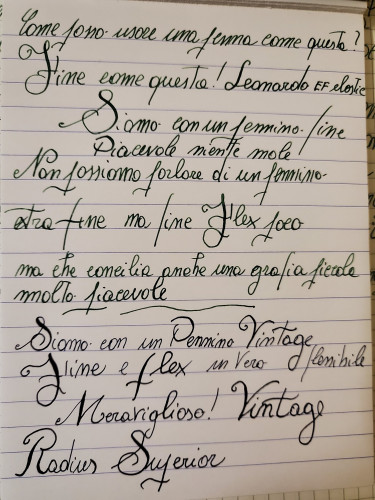 Come posso usare una penna come questa?
Fine come questa! Leonardo EF elastic
Siamo con un pennino fine
Piacevole niente male
Non possiamo parlare di un pennino
extra-fine ma fine Flex poco
ma che concilia anche una grafia piccola
molto piacevole
Siamo con un Pennino Vintage
Fine e flex un vero flessibile
Meraviglioso! Vintage
Radius Superior